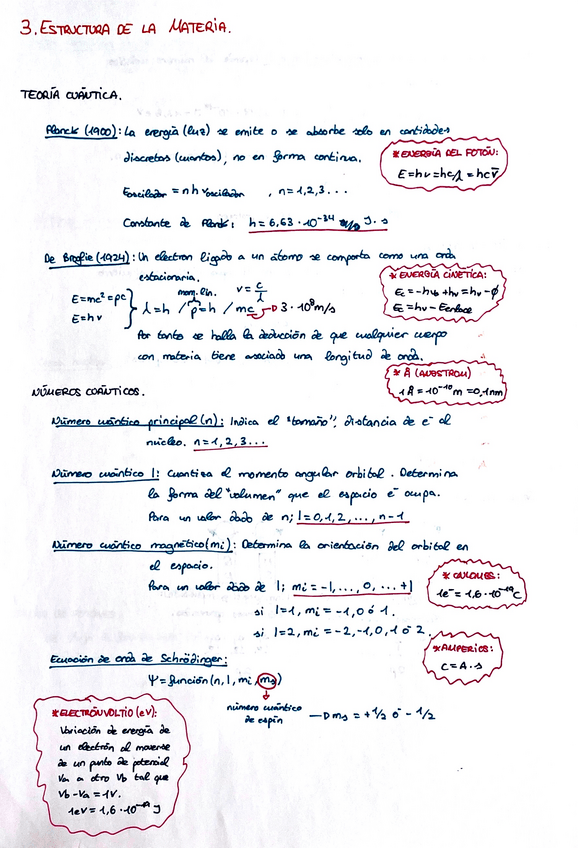 3. ESTRUCTURA DE LA MATERIA.
TEORÍA CUÁNTICA.
Planck (1900): La energía (luz) se emite o se absorbe solo en cantidades
discretas (cuantos), no en forma continua.
* ENERGÍA DEL FOTÓN:
E=hν=hc/λ = hcν̅
Eoscilador = n h νoscilador , n=1,2,3...
Constante de Planck: h=6,63·10⁻³⁴ J·s
De Broglie (1924): Un electron ligado a un átomo se comporta como una onda
estacionaria.
* ENERGÍA CINÉTICA:
Ec=-hν₀+hν=hν-ϕ
Ec=hν-Eenlace
E=mc²=pc
E=hν
mom. lin.
ν=c/λ
λ=h / p=h / mc → 3·10⁸m/s
Por tanto se halla la deducción de que cualquier cuerpo
con materia tiene asociado una longitud de onda.
* Å (ANGSTROM)
1Å=10⁻¹⁰m=0,1nm
NÚMEROS CUÁNTICOS.
Número cuántico principal (n): Indica el "tamaño", distancia de e⁻ al
núcleo. n=1,2,3...
Número cuántico l: Cuantiza el momento angular orbital. Determina
la forma del "volumen" que el espacio e⁻ ocupa.
Para un valor dado de n; l=0,1,2,...,n-1
Número cuántico magnético (mi): Determina la orientación del orbital en
el espacio.
Para un valor dado de l; mi=-l,...,0,...+l
si l=1, mi=-1,0 ó 1.
si l=2, mi=-2,-1,0,1 ó 2.
* CULOMBIOS:
1e⁻=1,6·10⁻¹⁹C
* AMPERIOS:
C=A·s
Ecuación de onda de Schrödinger:
Ψ=función(n, l, mi, ms)
número cuántico
de espín → ms=+1/2 ó -1/2
* ELECTRÓNVOLTIO (eV):
Variación de energía de
un electrón al moverse
de un punto de potencial
Va a otro Vb tal que
Vb-Va=1V.
1eV=1,6·10⁻¹⁹ J